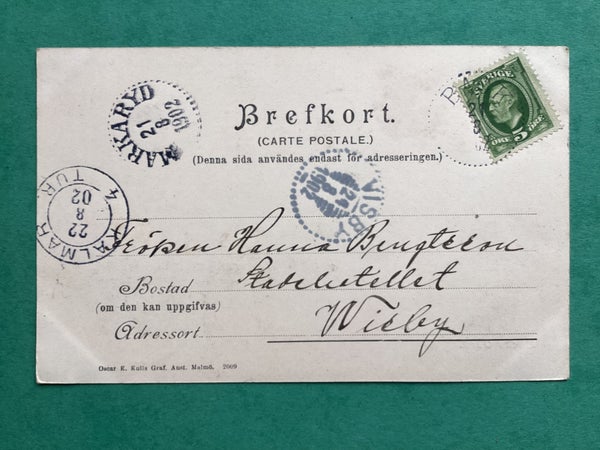 MARKARYD
21
8
1902
SVERIGE
5
ÖRE
ÖRE
Brefkort.
(CARTE POSTALE.)
(Denna sida användes endast för adresseringen.)
VISBY
KALMAR 4 TUR.
22
8
02
Fröken Hanna Bengtsson
Bostad
(om den kan uppgifvas)
Adressort
Wisby
Oscar E. Kulls Graf. Anst. Malmö. 2009